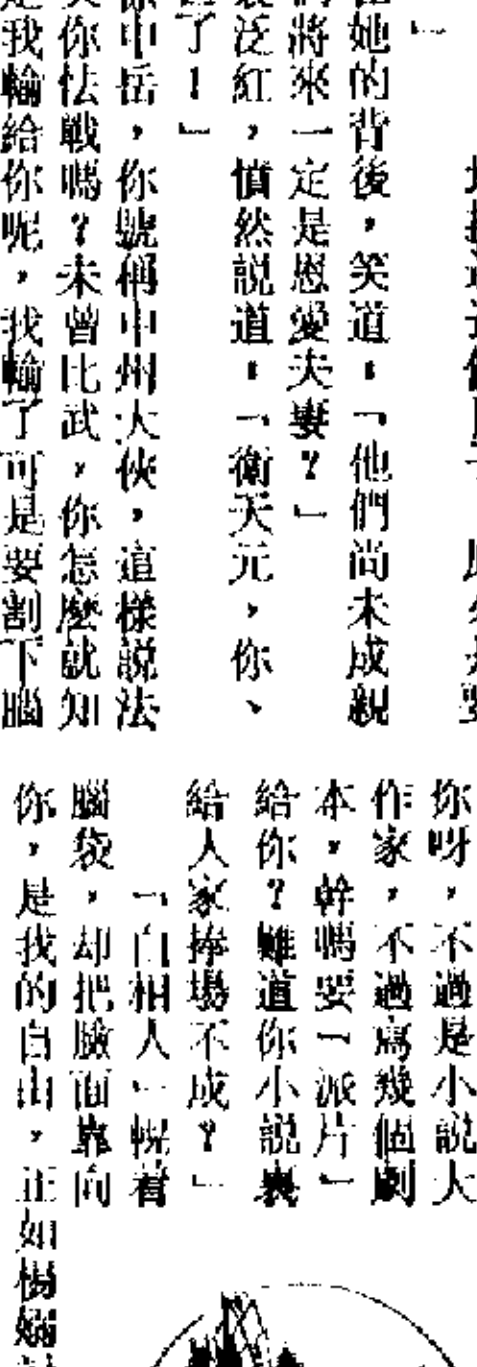 」
她的背後，笑道：「他們尚未成親
將來一定是恩愛夫妻？」
泛紅，憤然說道：「衛天元，你、
了！」
你中岳，你號稱中州大俠，這樣說法
你怯戰嗎？未曾比武，你怎麼就知
我輸給你呢，我輸了可是要割下腦
你呀，不過是小說大
作家，不過寫幾個劇
本，幹嗎要「派片」
給你？難道你小說裏
給人家捧場不成？」
「白相人」幌着
腦袋，却把臉面靠向
你，是我的自由，正如楊嫦